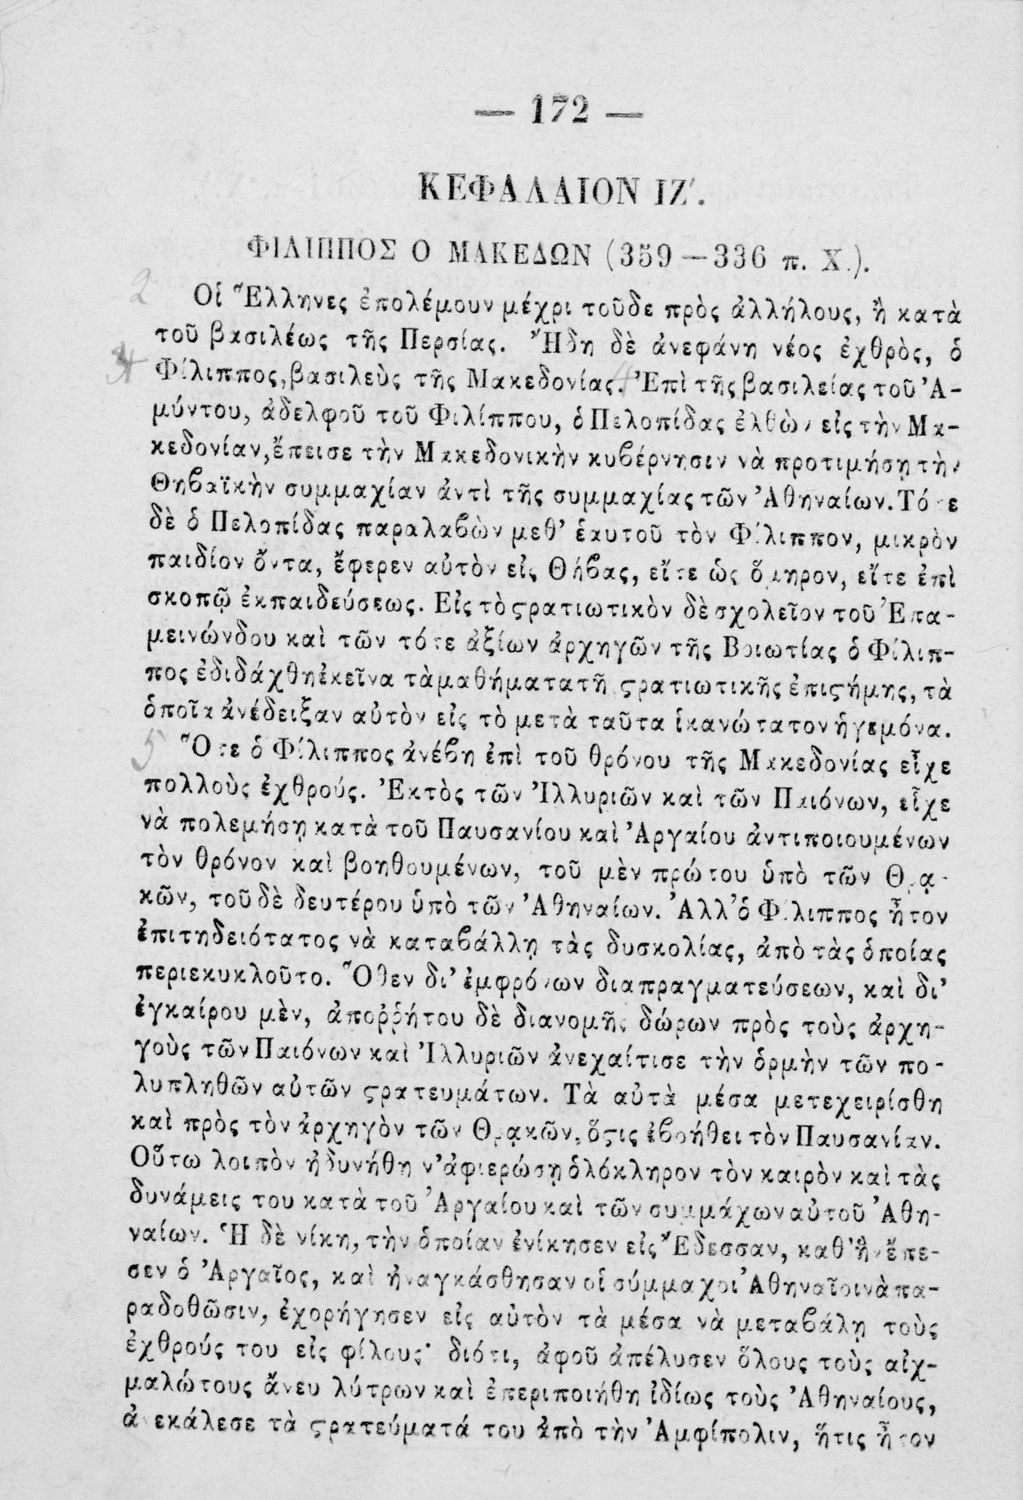 — 172 —
ΚΕΦΑΛΑΙΟΝ ΙΖ΄.
ΦΙΛΙΠΠΟΣ Ο ΜΑΚΕΔΩΝ (359—336 π. Χ.).
2 Οἱ Ἕλληνες ἐπολέμουν μέχρι τοῦδε πρὸς ἀλλήλους, ἢ κατὰ
τοῦ βασιλέως τῆς Περσίας. Ἤδη δὲ ἀνεφάνη νέος ἐχθρὸς, ὁ
Φίλιππος, βασιλεὺς τῆς Μακεδονίας. Ἐπὶ τῆς βασιλείας τοῦ Ἀ-
μύντου, ἀδελφοῦ τοῦ Φιλίππου, ὁ Πελοπίδας ἐλθὼν εἰς τὴν Μα-
κεδονίαν, ἔπεισε τὴν Μακεδονικὴν κυβέρνησιν νὰ προτιμήσῃ τὴν
Θηβαϊκὴν συμμαχίαν ἀντὶ τῆς συμμαχίας τῶν Ἀθηναίων. Τότε
δὲ ὁ Πελοπίδας παραλαβὼν μεθ' ἑαυτοῦ τὸν Φίλιππον, μικρὸν
παιδίον ὄντα, ἔφερεν αὐτὸν εἰς Θήβας, εἴτε ὡς ὅμηρον, εἴτε ἐπὶ
σκοπῷ ἐκπαιδεύσεως. Εἰς τὸ ϛρατιωτικὸν δὲ σχολεῖον τοῦ Ἐπα-
μεινώνδου καὶ τῶν τότε ἀξίων ἀρχηγῶν τῆς Βοιωτίας ὁ Φίλιπ-
πος ἐδιδάχθη ἐκεῖνα τὰ μαθήματα τῆς ϛρατιωτικῆς ἐπιϛήμης, τὰ
ὁποῖα ἀνέδειξαν αὐτὸν εἰς τὸ μετὰ ταῦτα ἱκανώτατον ἡγεμόνα.
5 Ὅτε ὁ Φίλιππος ἀνέβη ἐπὶ τοῦ θρόνου τῆς Μακεδονίας εἶχε
πολλοὺς ἐχθρούς. Ἐκτὸς τῶν Ἰλλυριῶν καὶ τῶν Παιόνων, εἶχε
νὰ πολεμήσῃ κατὰ τοῦ Παυσανίου καὶ Ἀργαίου ἀντιποιουμένων
τὸν θρόνον καὶ βοηθουμένων, τοῦ μὲν πρώτου ὑπὸ τῶν Θρᾳ-
κῶν, τοῦ δὲ δευτέρου ὑπὸ τῶν Ἀθηναίων. Ἀλλ' ὁ Φίλιππος ἦτον
ἐπιτηδειότατος νὰ καταβάλλῃ τὰς δυσκολίας, ἀπὸ τὰς ὁποίας
περιεκυκλοῦτο. Ὅθεν δι' ἐμφρόνων διαπραγματεύσεων, καὶ δι'
ἐγκαίρου μὲν, ἀποῤῥήτου δὲ διανομῆς δώρων πρὸς τοὺς ἀρχη-
γοὺς τῶν Παιόνων καὶ Ἰλλυριῶν ἀνεχαίτισε τὴν ὁρμὴν τῶν πο-
λυπληθῶν αὐτῶν ϛρατευμάτων. Τὰ αὐτὰ μέσα μετεχειρίσθη
καὶ πρὸς τὸν ἀρχηγὸν τῶν Θρᾳκῶν, ὅϛις ἐβοήθει τὸν Παυσανίαν.
Οὕτω λοιπὸν ἠδυνήθη ν' ἀφιερώσῃ ὁλόκληρον τὸν καιρὸν καὶ τὰς
δυνάμεις του κατὰ τοῦ Ἀργαίου καὶ τῶν συμμάχων αὐτοῦ Ἀθη-
ναίων. Ἡ δὲ νίκη, τὴν ὁποίαν ἐνίκησεν εἰς Ἔδεσσαν, καθ' ἣν ἔπε-
σεν ὁ Ἀργαῖος, καὶ ἠναγκάσθησαν οἱ σύμμαχοι Ἀθηναῖοι νὰ πα-
ραδοθῶσιν, ἐχορήγησεν εἰς αὐτὸν τὰ μέσα νὰ μεταβάλῃ τοὺς
ἐχθρούς του εἰς φίλους· διότι, ἀφοῦ ἀπέλυσεν ὅλους τοὺς αἰχ-
μαλώτους ἄνευ λύτρων καὶ ἐπεριποιήθη ἰδίως τοὺς Ἀθηναίους,
ἀνεκάλεσε τὰ ϛρατεύματά του ἀπὸ τὴν Ἀμφίπολιν, ἥτις ἦτον